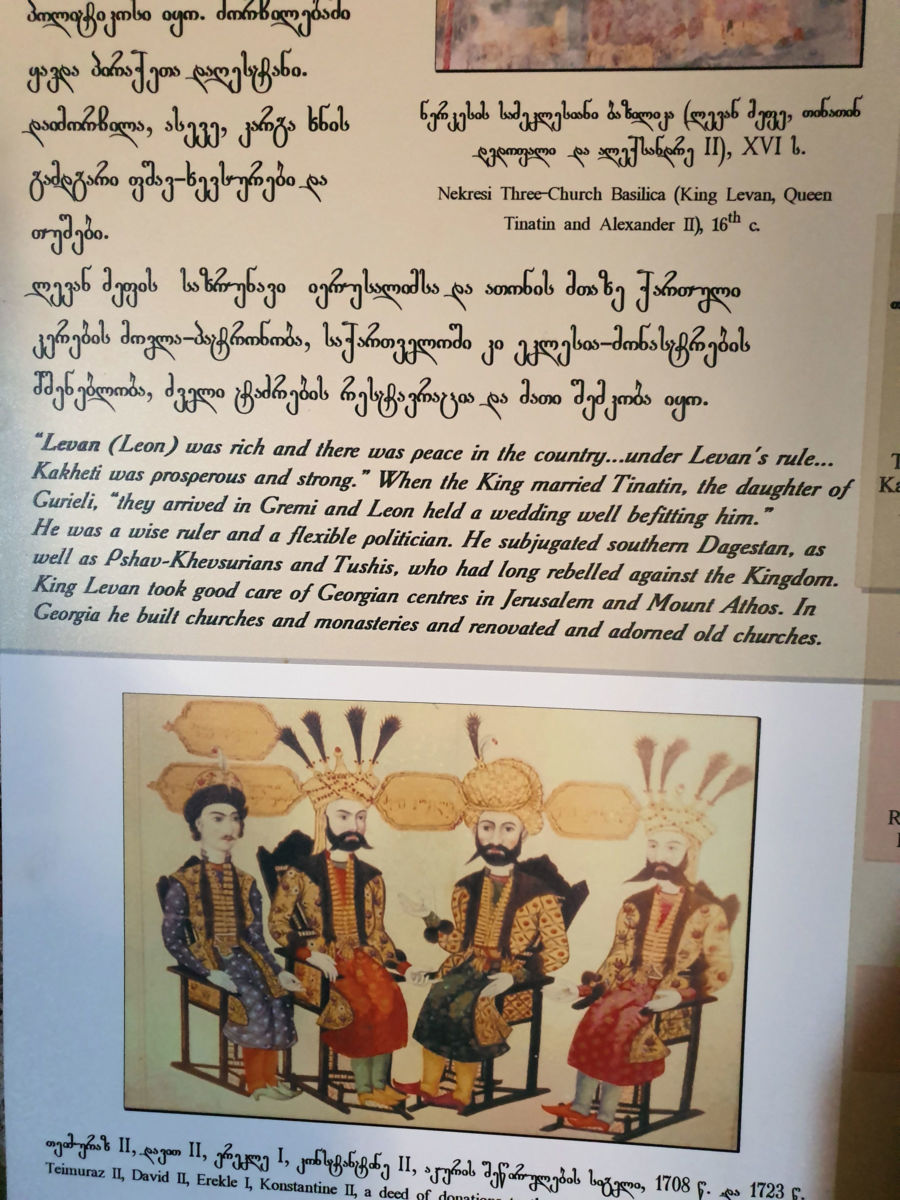 პოლიტიკოსი იყო. მორჩილებაში
ყავდა პირაქეთა დაღესტანი.
დაიმორჩილა, ასევე, კარგა ხნის
გამდგარი ფშავ-ხევსურები და
თუშები.
ნეკრესის სამეკლესიანი ბაზილიკა (ლევან მეფე, თინათინ
დედოფალი და ალექსანდრე II), XVI ს.
Nekresi Three-Church Basilica (King Levan, Queen
Tinatin and Alexander II), 16th c.
ლევან მეფის საზრუნავი იერუსალიმსა და ათონის მთაზე ქართული
კერების მოვლა-პატრონობა, საქართველოში კი ეკლესია-მონასტრების
მშენებლობა, ძველი ტაძრების რესტავრაცია და მათი შემკობა იყო.
"Levan (Leon) was rich and there was peace in the country...under Levan's rule...
Kakheti was prosperous and strong." When the King married Tinatin, the daughter of
Gurieli, "they arrived in Gremi and Leon held a wedding well befitting him."
He was a wise ruler and a flexible politician. He subjugated southern Dagestan, as
well as Pshav-Khevsurians and Tushis, who had long rebelled against the Kingdom.
King Levan took good care of Georgian centres in Jerusalem and Mount Athos. In
Georgia he built churches and monasteries and renovated and adorned old churches.
თეიმურაზ II, დავით II, ერეკლე I, კონსტანტინე II, აკურის შეწირულების სიგელი, 1708 წ. და 1723 წ.
Teimuraz II, David II, Erekle I, Konstantine II, a deed of